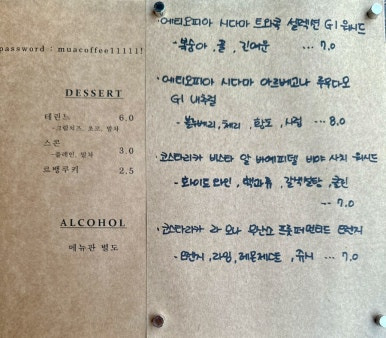 password : muacoffee11111!
DESSERT
테린느 6.0
-크림치즈, 쵸코, 말차
스콘 3.0
-플레인, 말차
르뱅쿠키 2.5
ALCOHOL
메뉴판 별도
·에티오피아 시다마 트와콕 셀렉션 G1 워시드
- 복숭아, 귤, 긴여운 ... 7.0
·에티오피아 시다마 아르베고나 루무다모
G1 내추럴
- 블루베리, 체리, 황도, 시럽 ... 8.0
·코스타리카 비스타 알 바예 피델 비야 사치 워시드
- 화이트 와인, 핵과류, 갈색설탕, 클린
... 7.0
·코스타리카 라 모나 무산소 프룻퍼멘티드 오렌지
- 오렌지, 라임, 레몬제스트, 쥬시 ... 7.0